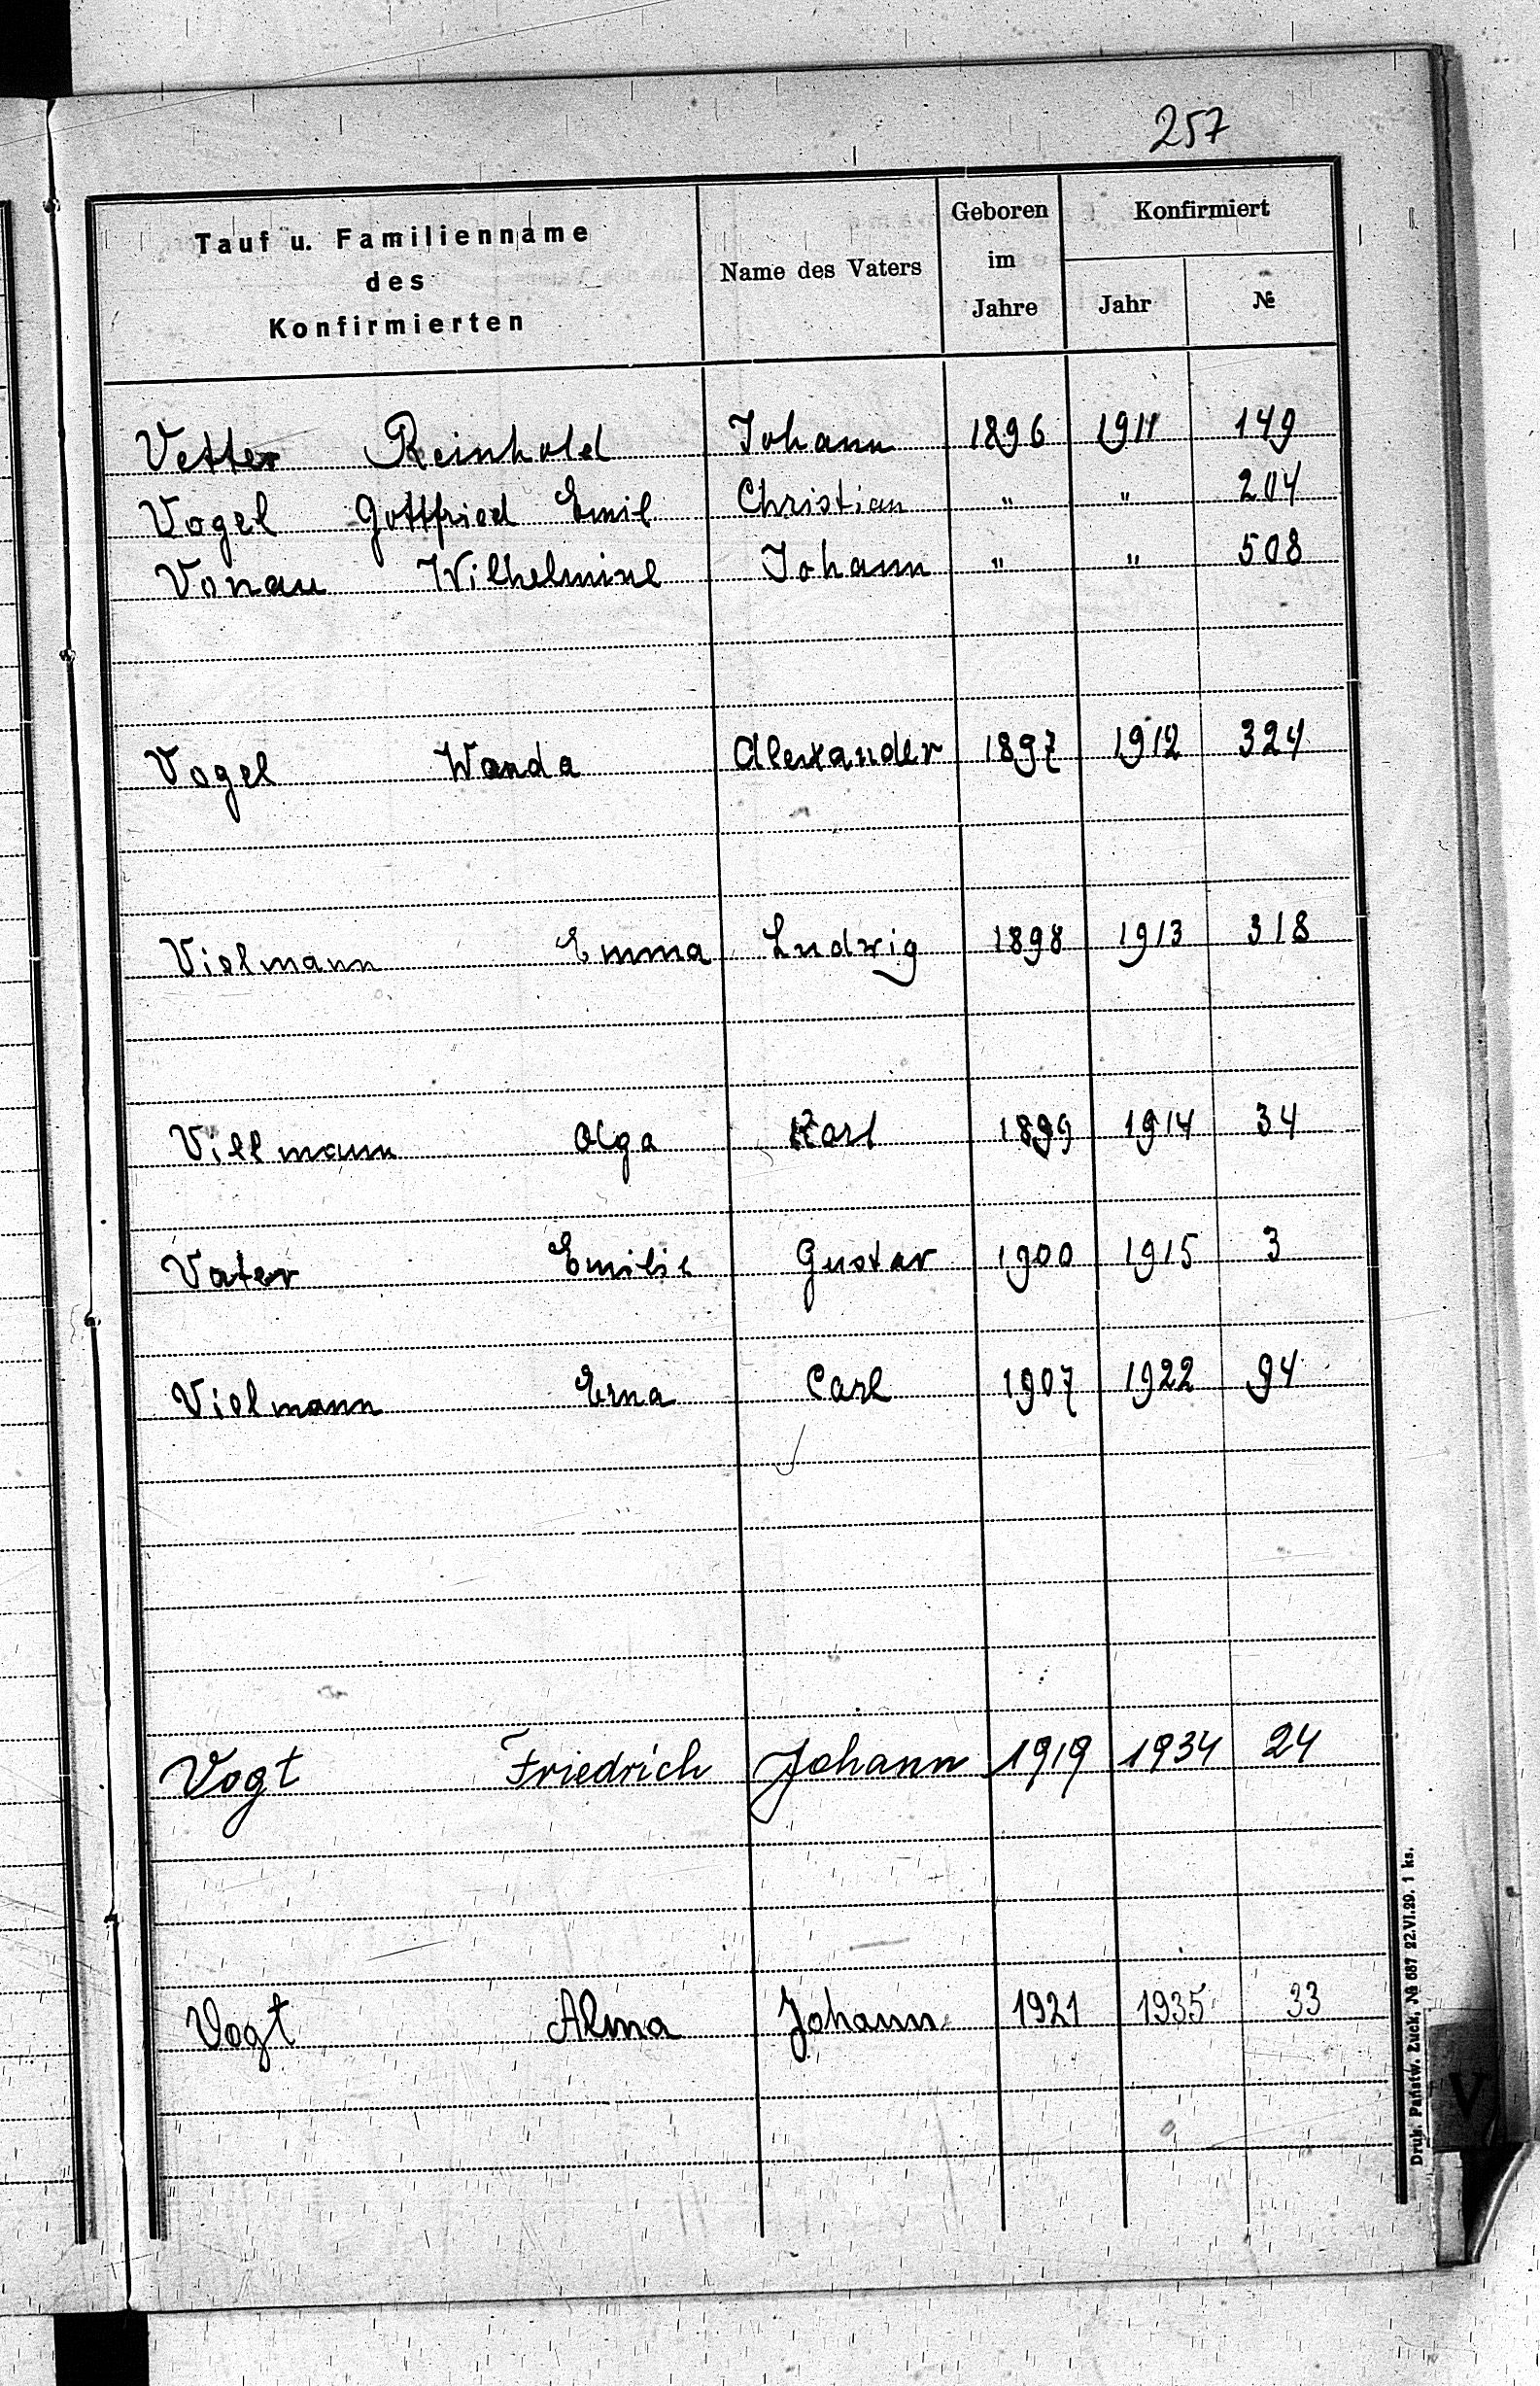 257
Tauf u. Familienname des Konfirmierten | Name des Vaters | Geboren im Jahre | Konfirmiert Jahr | №
Vetter Reinhold Johann 1896 1911 149
Vogel Gottfried Emil Christian " " 204
Vonau Wilhelmine Johann " " 508
Vogel Wanda Alexander 1897 1912 324
Vielmann Emma Ludwig 1898 1913 318
Villmann Olga Karl 1899 1914 34
Vater Emilie Gustav 1900 1915 3
Vielmann Erna Carl 1907 1922 94
Vogt Friedrich Johann 1919 1934 24
Vogt Alma Johann 1921 1935 33
Druk. Państw. Łuck, № 687 22.VI.29. 1 ks.
V